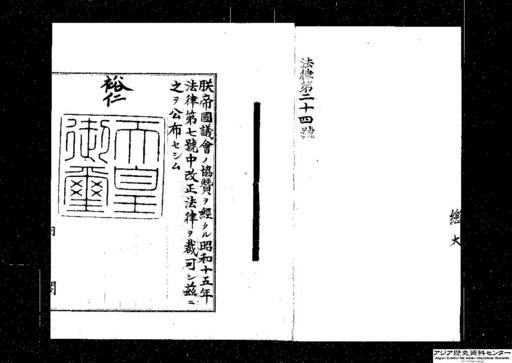 法律第二十四號
朕帝國議會ノ協贊ヲ經タル昭和十五年
法律第七號中改正法律ヲ裁可シ茲ニ
之ヲ公布セシム
裕仁
天皇
御璽
内
閣
大
アジア歴史資料センター